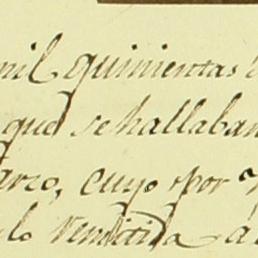 mil quinientas
que se hallaban
arzo, cuyo por
lo vendida á